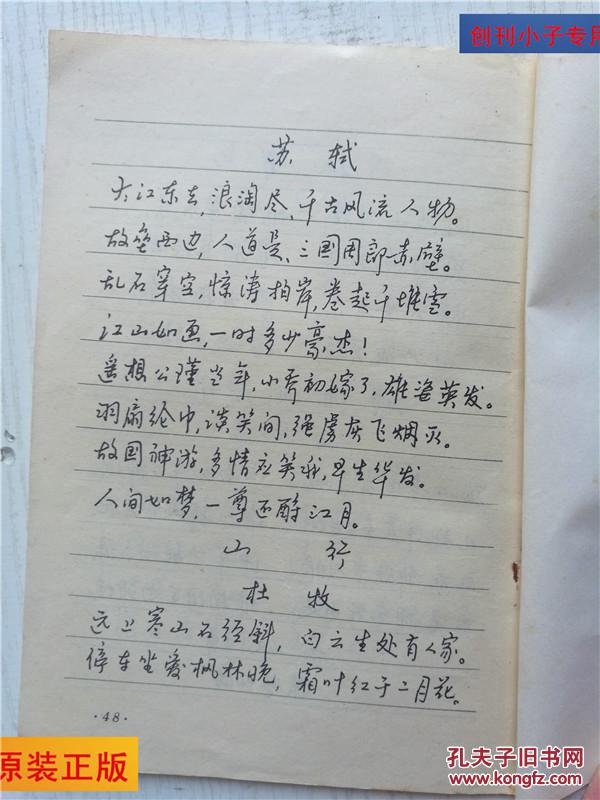 创刊小子专用
苏 轼
大江东去,浪淘尽、千古风流人物。
故垒西边,人道是、三国周郎赤壁。
乱石穿空,惊涛拍岸,卷起千堆雪。
江山如画,一时多少豪杰!
遥想公瑾当年,小乔初嫁了,雄姿英发。
羽扇纶巾,谈笑间,强虏灰飞烟灭。
故国神游,多情应笑我,早生华发。
人间如梦,一尊还酹江月。
山 行
杜 牧
远上寒山石径斜,白云生处有人家。
停车坐爱枫林晚,霜叶红于二月花。
·48·
原装正版
孔夫子旧书网
www.kongfz.com